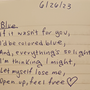 6/26/23
Blue
If it wasn't for you,
I'd be colored blue,
And, everything's so light
I'm thinking I might,
Let myself lose me,
Open up, feel free ♡